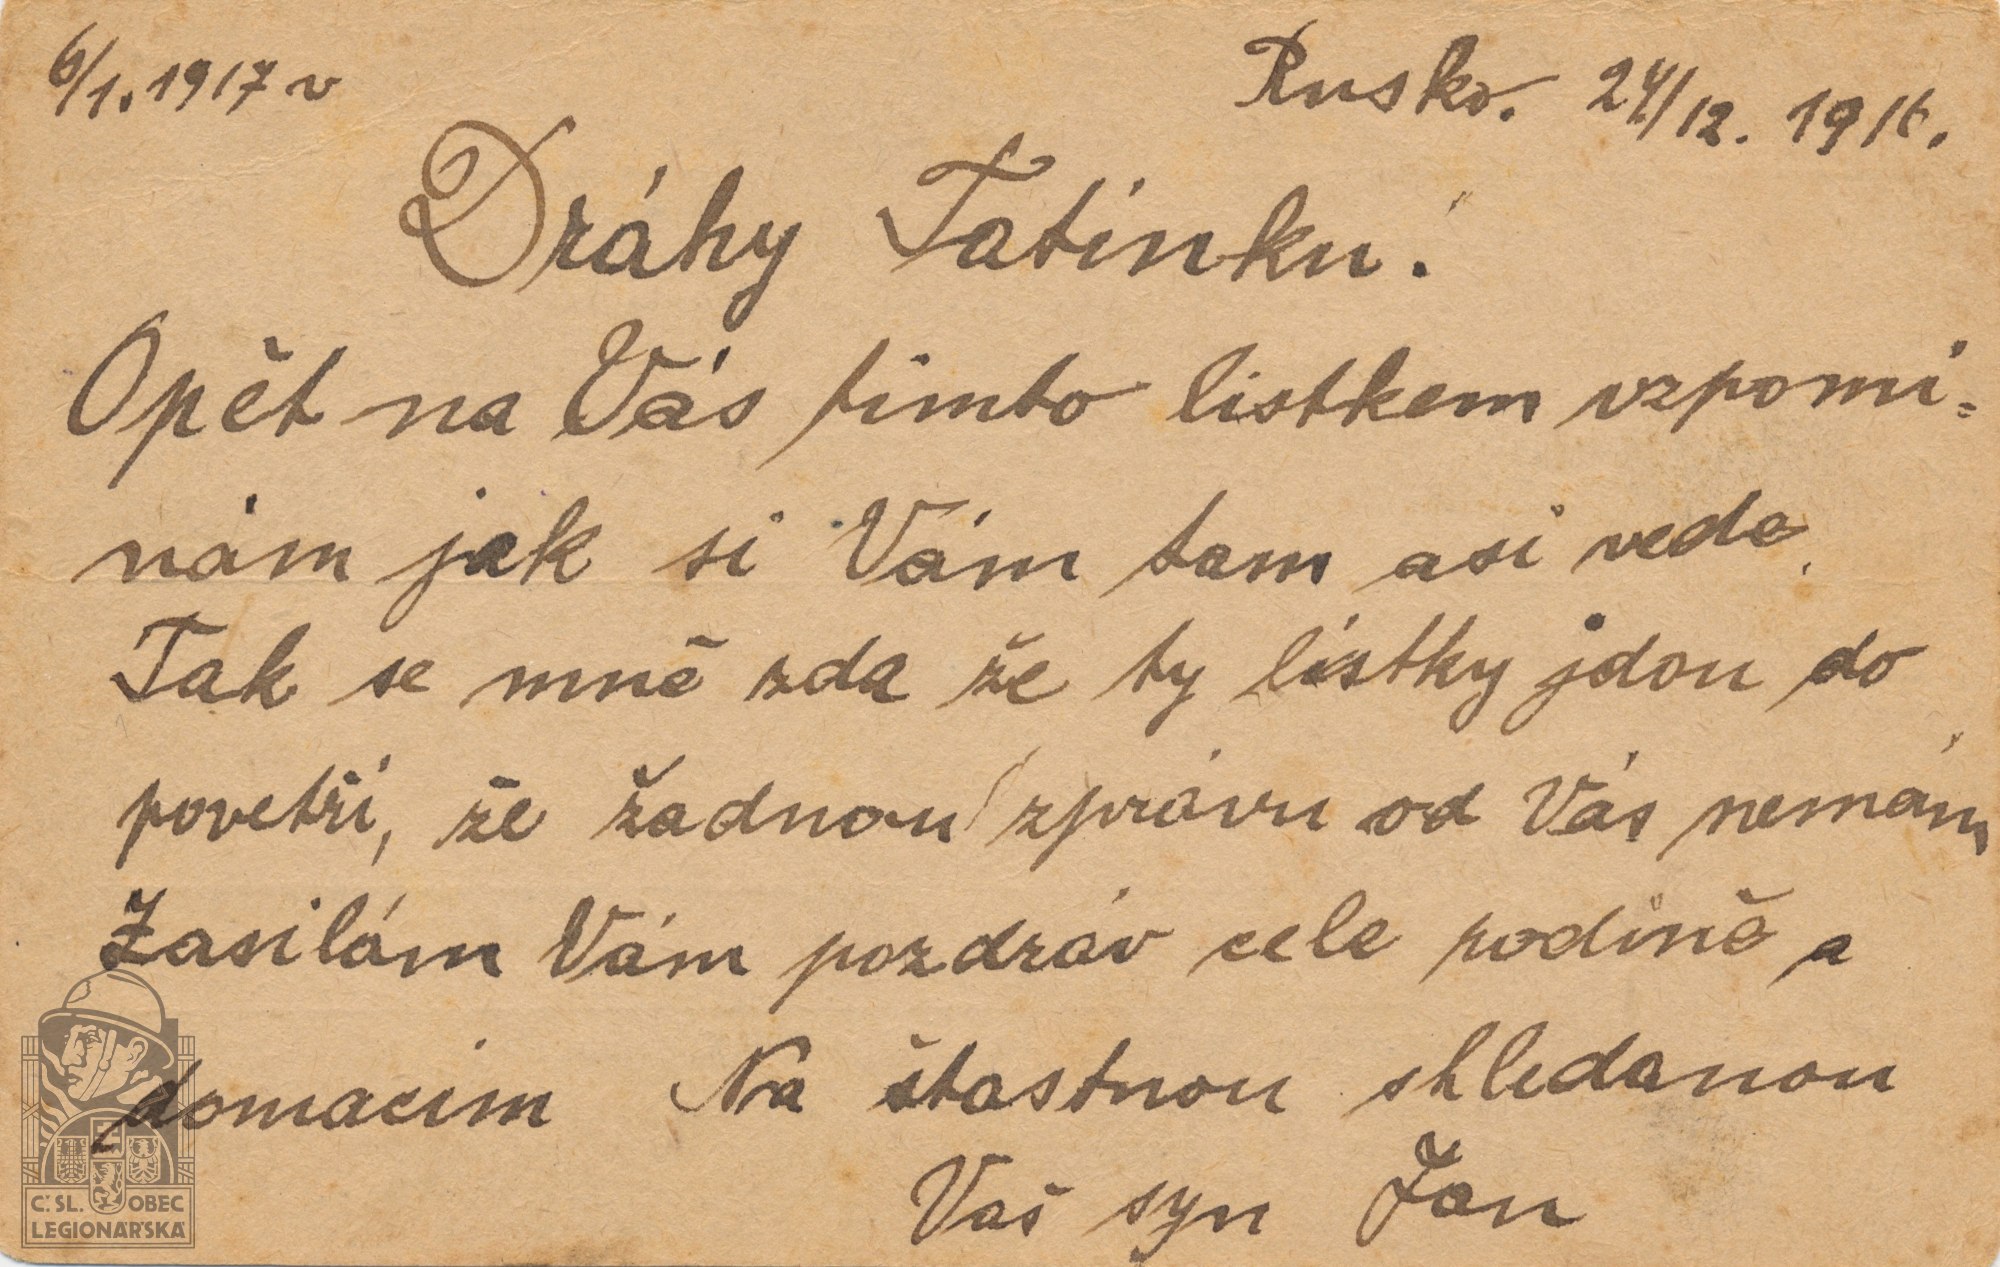 6/1. 1917 v
Rusko. 24/12. 1916.
Dráhy Tatínku!
Opět na Vás timto listkem vzpomi=
nám jak si Vám tam asi vede.
Tak se mně zda že ty lístky jdou do
povetří, že žadnou zprávu od Vás nemám
Zasilám Vám pozdráv cele rodině a
domacim Na štastnou shledanou
Vaš syn Jan
Č.SL. OBEC
LEGIONÁŘSKÁ